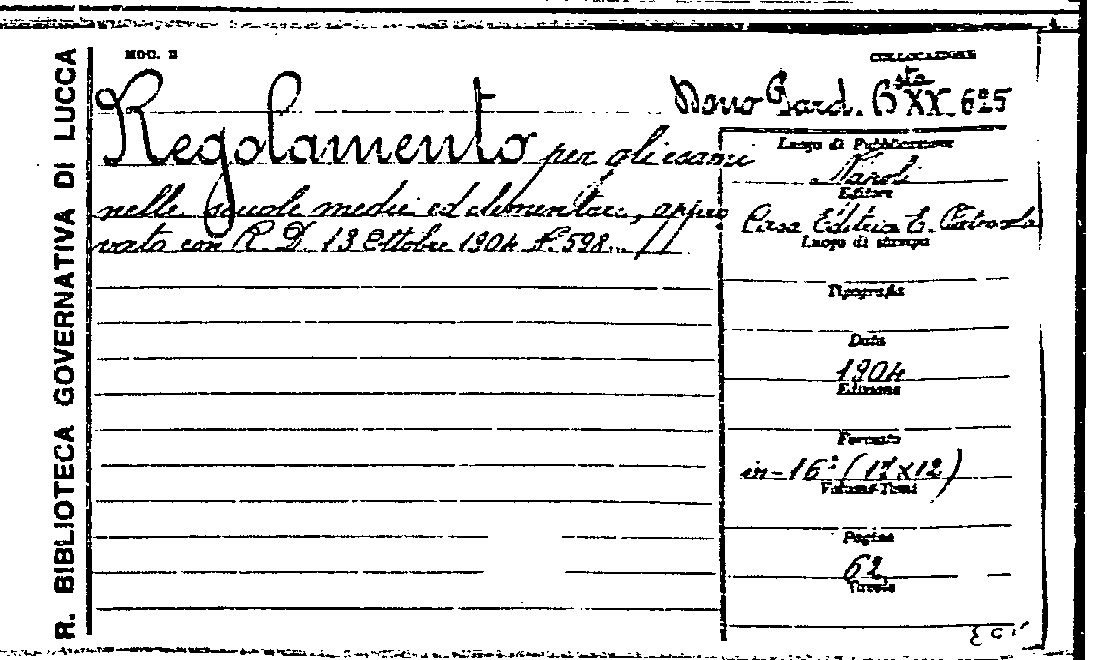 R. BIBLIOTECA GOVERNATIVA DI LUCCA
MOD. B
COLLOCAZIONE
Dono Gard. Bsta XX. 625
Regolamento per gli esami
nelle scuole medie ed elementari, appro
vato con R. D. 13 Ottobre 1904 N. 598... //
Luogo di Pubblicazione
Napoli
Editore
Casa Editrice E. Pietrocola
Luogo di stampa
Tipografia
Data
1904
Edizione
Formato
in-16º (17x12)
Volume-Tomi
Pagine
62
Tavole